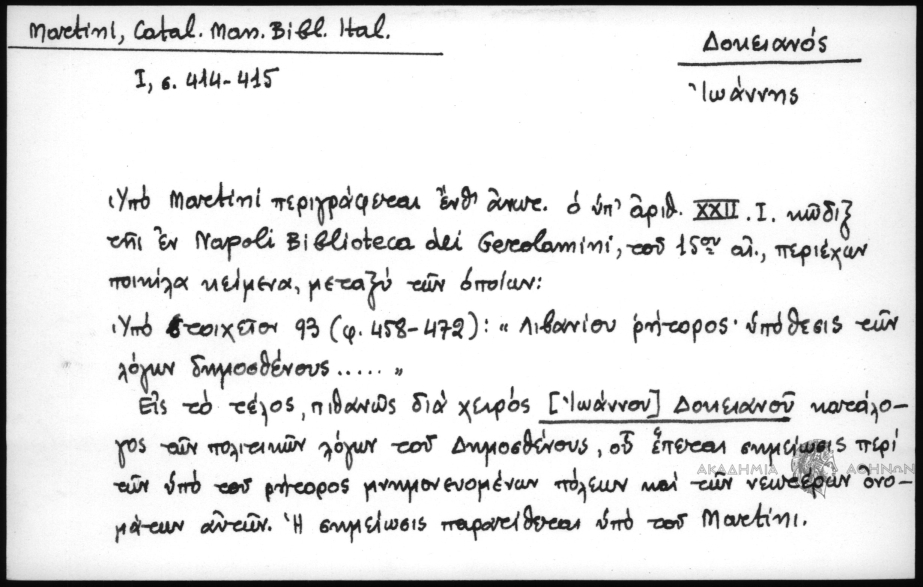 Martini, Catal. Man. Bibl. Ital.
I, σ. 414-415
Δοκειανός
Ἰωάννης
Ὑπό Martini περιγράφεται ἔνθ' ἀνωτ. ὁ ὑπ' ἀριθ. XXII. I. κῶδιξ
τῆς ἐν Napoli Biblioteca dei Gerolamini, τοῦ 15ου αἰ., περιέχων
ποικίλα κείμενα, μεταξύ τῶν ὁποίων:
Ὑπό στοιχεῖον 93 (φ. 458-472): « Λιβανίου ῥήτορος· ὑπόθεσις τῶν
λόγων δημοσθένους ..... »
Εἰς τό τέλος, πιθανῶς διά χειρός [Ἰωάννου] Δοκειανοῦ κατάλο-
γος τῶν πολιτικῶν λόγων τοῦ Δημοσθένους, οὗ ἕπεται σημείωσις περί
τῶν ὑπό τοῦ ρήτορος μνημονευομένων πόλεων καί τῶν νεωτέρων ὀνο-
μάτων αὐτῶν. Ἡ σημείωσις παρατίθεται ὑπό τοῦ Martini.
ΑΚΑΔΗΜΙΑ ΑΘΗΝΩΝ